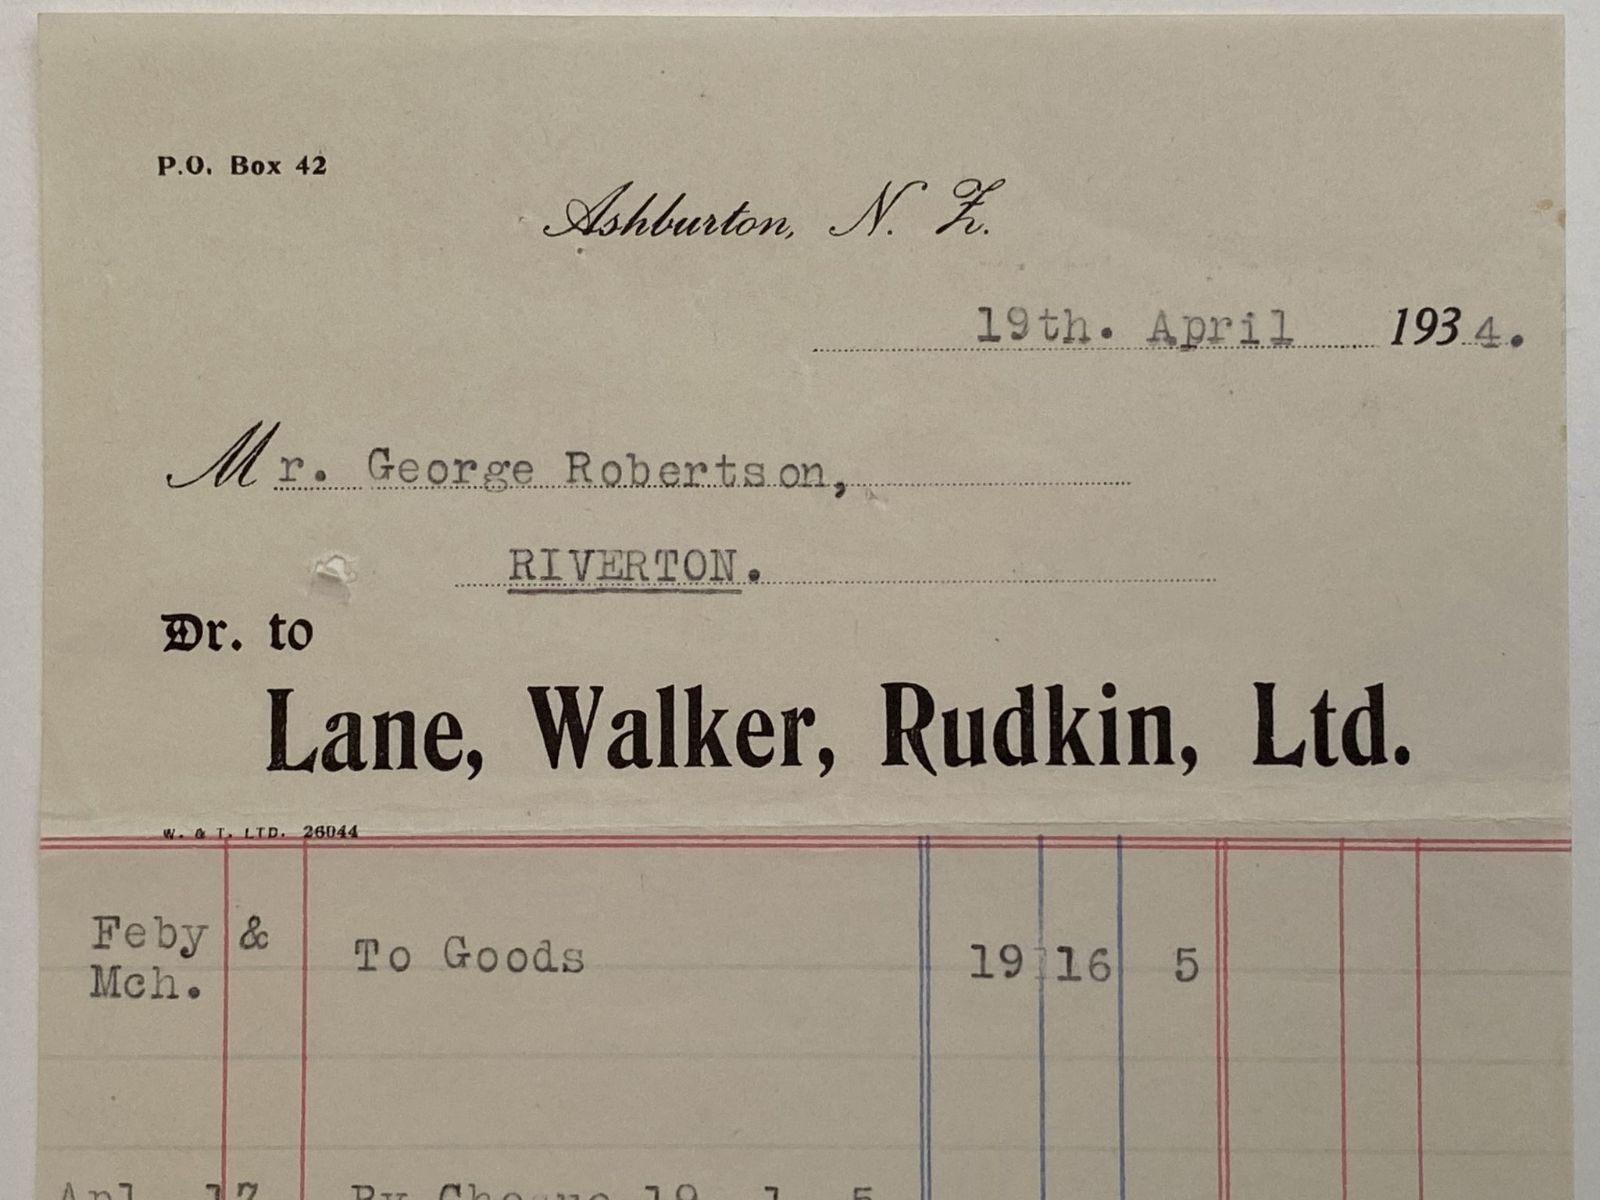 P.O. Box 42
Ashburton, N. Z.
19th. April 1934.
Mr. George Robertson,
RIVERTON.
Dr. to
Lane, Walker, Rudkin, Ltd.
W. & T. LTD. 26044
Feby &
Mch. To Goods 19 16 5
Apl. 17 By Cheque 19 1 5